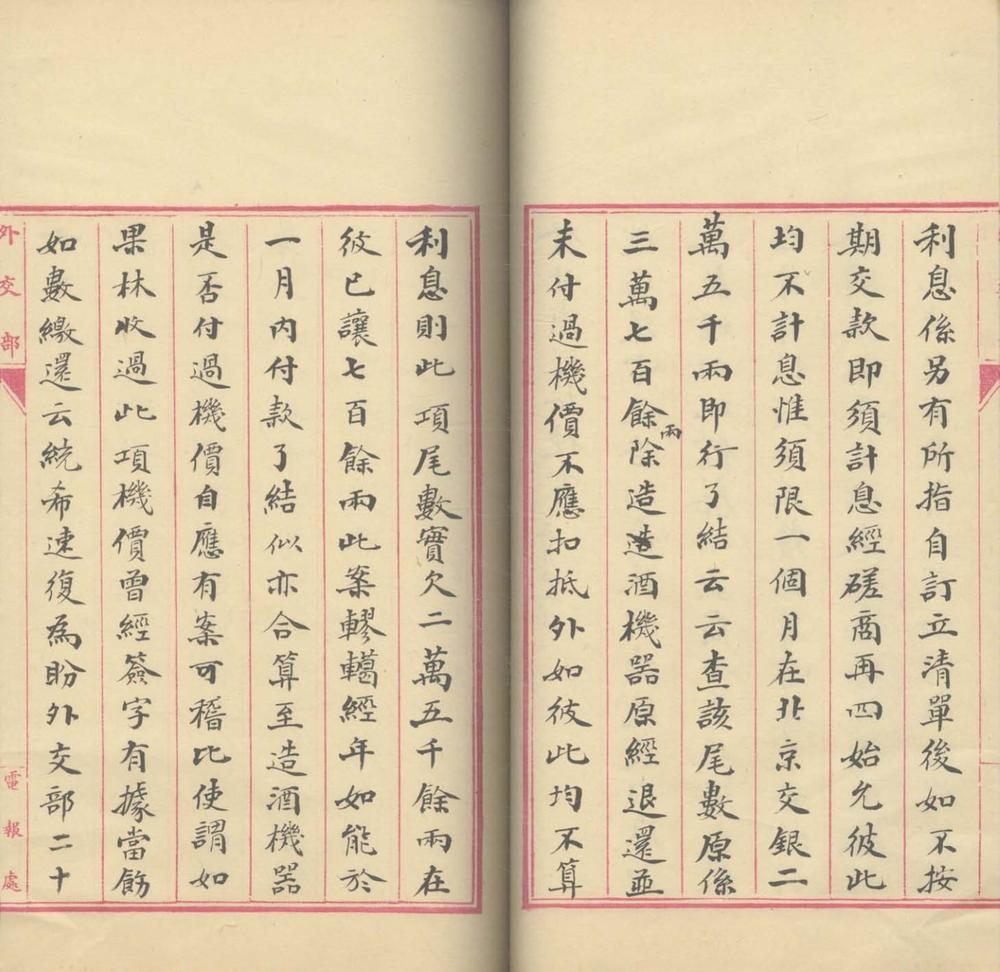 利息係另有所指自訂立清單後如不按
期交款即須計息經磋商再四始允彼此
均不計息惟須限一個月在北京交銀二
萬五千兩即行了結云云查該尾數原係
三萬七百餘兩除造造酒機器原經退還並
未付過機價不應扣抵外如彼此均不算
利息則此項尾數實欠二萬五千餘兩在
彼已讓七百餘兩此案轇轕經年如能於
一月內付款了結似亦合算至造酒機器
是否付過機價自應有案可稽比使謂如
果林收過此項機價曾經簽字有據當飭
如數繳還云統希速復為盼外交部二十
外交部
電報處